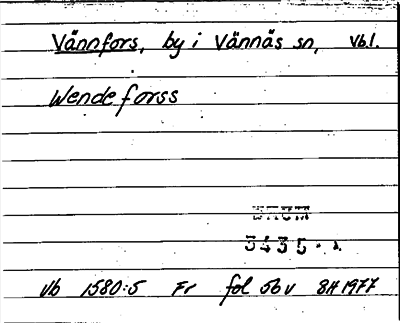 Vännfors, by i Vännäs sn, Vb.l.
Wendeforss
DAUM
3435.
Vb 1580:5 Fr fol 56v BH 1977